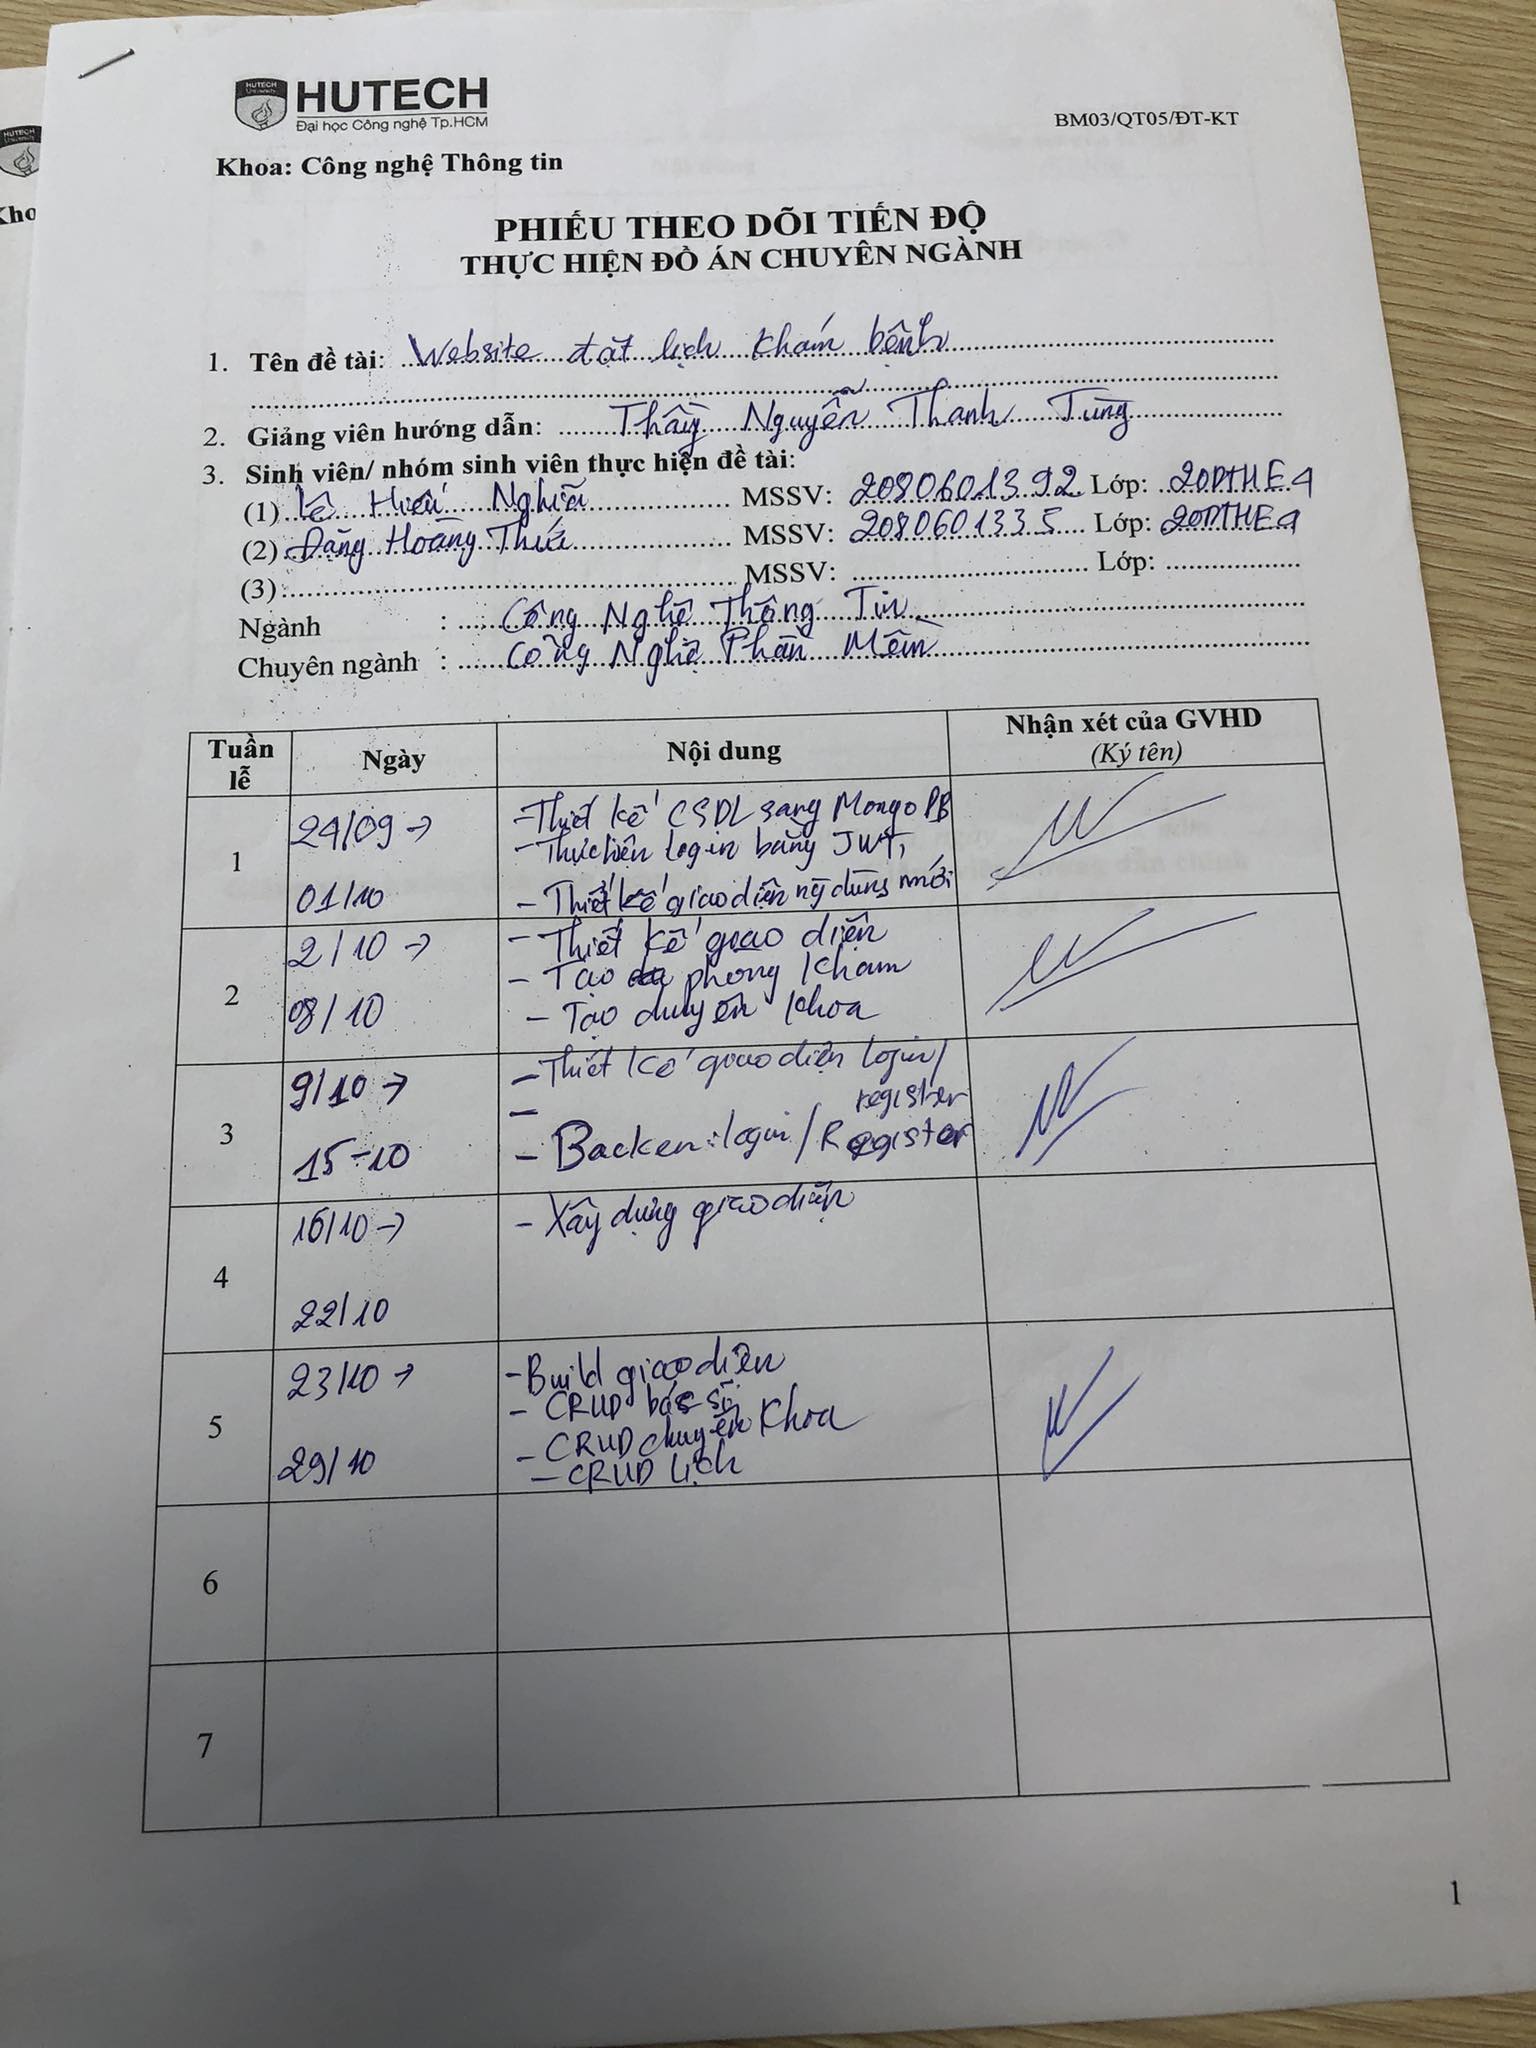 HUTECH
University
HUTECH
Đại học Công nghệ Tp.HCM
BM03/QT05/ĐT-KT
Khoa: Công nghệ Thông tin
PHIẾU THEO DÕI TIẾN ĐỘ
THỰC HIỆN ĐỒ ÁN CHUYÊN NGÀNH
1. Tên đề tài: Website đặt lịch khám bệnh
2. Giảng viên hướng dẫn: Thầy Nguyễn Thanh Tùng
3. Sinh viên/ nhóm sinh viên thực hiện đề tài:
(1) Lê Hiếu Nghĩa MSSV: 2080601392 Lớp: 20DTHE4
(2) Đặng Hoàng Thứ MSSV: 2080601335 Lớp: 20DTHE4
(3) MSSV: Lớp:
Ngành : Công Nghệ Thông Tin
Chuyên ngành : Công Nghệ Phần Mềm
Tuần lễ Ngày Nội dung Nhận xét của GVHD
(Ký tên)
1 24/09 → 01/10
- Thiết kế CSDL sang MongoDB
- Thực hiện login bằng JWT,
- Thiết kế giao diện ng dùng mới
2 2/10 → 08/10
- Thiết kế giao diện
- Tạo phòng khám
- Tạo chuyên khoa
3 9/10 → 15-10
- Thiết kế giao diện login/
register
-
- Backen: login/Register
4 16/10 → 22/10
- Xây dựng giao diện
5 23/10 → 29/10
- Build giao diện
- CRUD bác sĩ
- CRUD chuyên khoa
- CRUD lịch
6
7
1